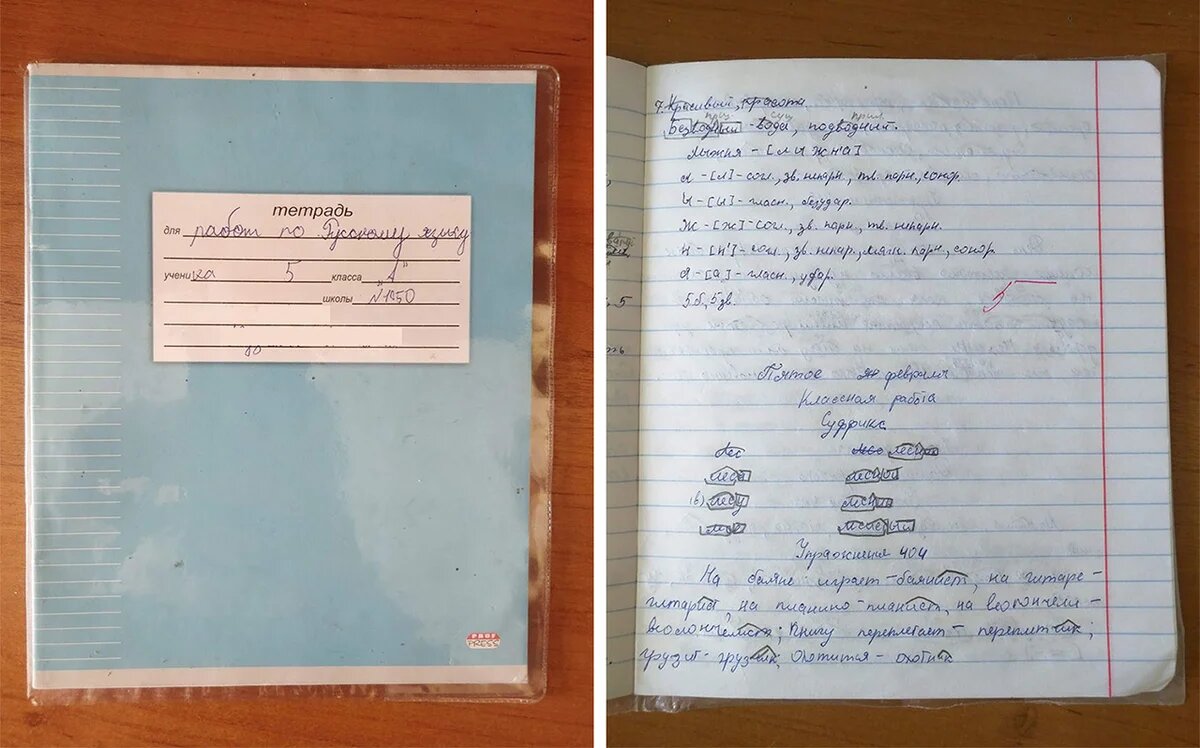 тетрадь
для работ по Русскому языку
ученика 5 класса "А"
школы №1050
PROF
PRESS
7. Красивый, красота
прил сущ прил
Безводный - вода, подводный.
лыжня - [лыжн'а]
л - [л] - согл., зв. непарн., тв. парн., сонор.
ы - [ы] - гласн., безудар.
ж - [ж] - согл., зв. парн., тв. непарн.
н - [н'] - согл., зв. непар., мягк. парн., сонор.
я - [а] - гласн., удар.
5 б, 5 зв.
5
Пятое февраля
Классная работа
Суффикс
лес лесной
леса лесной
(в) лесу
Упражнение 404
На баяне играет - баянист, на гитаре -
гитарист, на пианино - пианист, на веолончели -
веолончелист; Книгу переплетает - переплетчик;
грузит - грузчик; Охотится - охотник